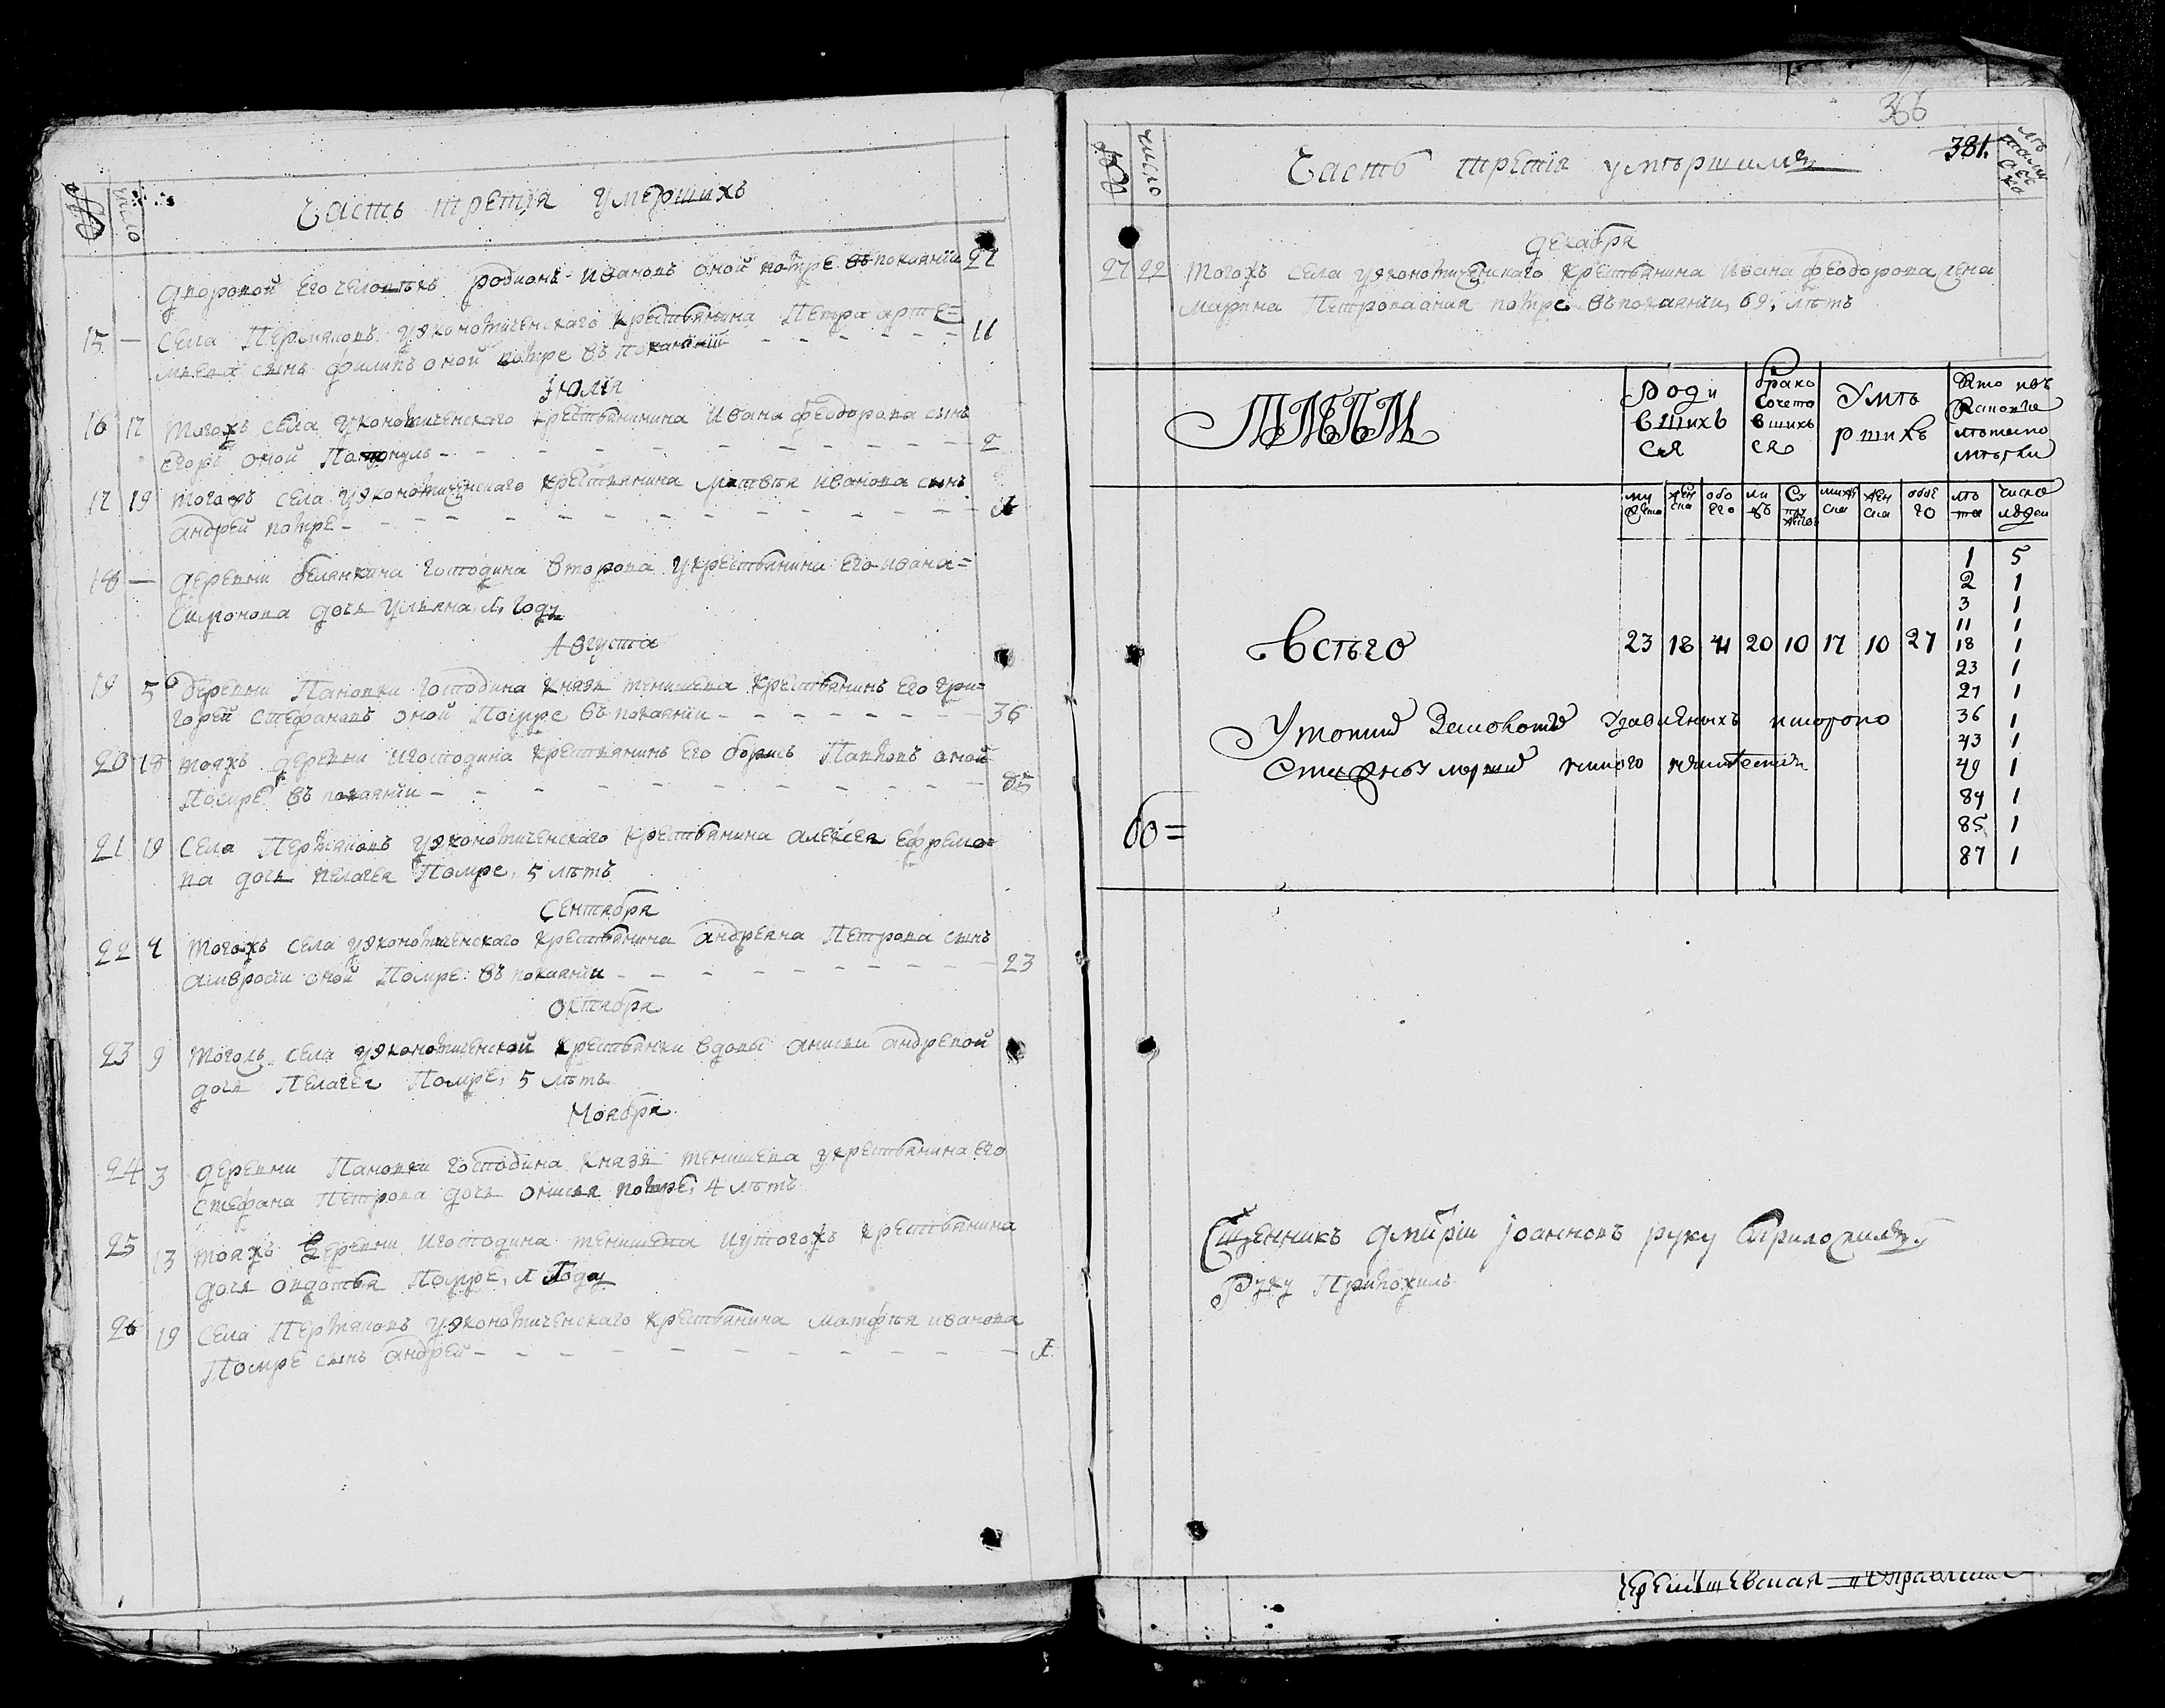 число
Часть третiя умерших
дворовой его человекъ родионъ Ивановъ оной помре въ покаянiи 27
15 — Села Пермяковъ уэкономическаго крестьянина Петра арте=
мьева сынъ филипъ оной помре въ покаянiи - - - - - - 11
Iюлiя
16 17 тогожъ села уэкономическаго крестьянинина Ивана феодорова сынъ
егоръ оной - - - - - - - - - 2
17 19 тогожъ села уэкономическаго крестьянина матвѣя иванова сынъ
андрей помре - - - - - - - - - - 1
18 — деревни белянкина господина второва укрестьянина его ивана=
Симонова дочь ульяна, 1, году
Августа
19 5 деревни Пановки господина князя тенишева крестьянинъ его гри=
горей стефановъ оной Помре въ покаянiи - - - - - - 36
20 18 тояжъ деревни игосподина крестьянинъ его борисъ Павловъ оной
Помре въ покаянiи - - - - - - - - - 85
21 19 Села Пермяковъ уэкономическаго крестьянина алексея ефремо=
ва дочь пелагея Помре, 5 лѣтъ
Сентября
22 4 тогожъ села уэкономическаго крестьянина андреяна Петрова сынъ
амвросiи оной Помре въ покаянiи - - - - - - - - 23
октября
23 9 тогожъ села уэкономической крестьянки вдовы анисьи андревой
дочь Пелагея Помре, 5 лѣтъ
Ноября
24 3 деревни Пановки господина князя тенишева укрестьянина его
стефана Петрова дочь онисья помре, 4 лѣтъ
25 13 тояжъ деревни игосподина тенишева иутогожъ крестьянина
дочь овдотья Помре, 1 году
26 19 села Пермяковъ уэкономическаго крестьянина матфѣя иванова
Помре сынъ андрей - - - - - - - - - - 1
366
381.
число
Часть третiя умѣршимъ
декабря
27 22 тогожъ села уэкономическаго крестьянина Ивана феодорова жена
марина Петроваоная помре въ покаянiи, 69, лѣтъ
роди вшихъ ся
брако сочета вшихъ ся
Умѣ ршихъ
обо его
обое го
лѣ та
число людей
Всѣго 23 18 41 20 10 17 10 27
1 5
2 1
3 1
11 1
18 1
23 1
27 1
36 1
43 1
49 1
84 1
85 1
87 1
Священникъ дмитрiи Iоанновъ руку приложилъ
Руку Приложилъ